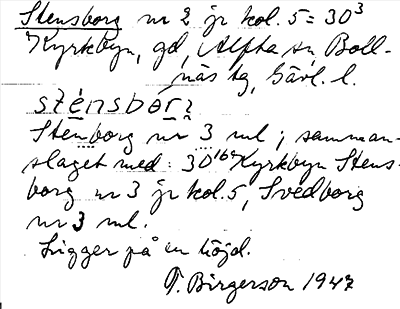 Stensborg nr 2 jr kol. 5 = 30³
Kyrkbyn, gd, Alfta sn, Boll-
näs tg, Gävl. l.
sténsbor̩
Stenborg nr 3 ml; samman-
slaget med: 30¹⁶ Kyrkbyn Stens-
borg nr 3 jr kol. 5, Svedborg
nr 3 ml.
Ligger på en höjd.
T. Birgerson 1947